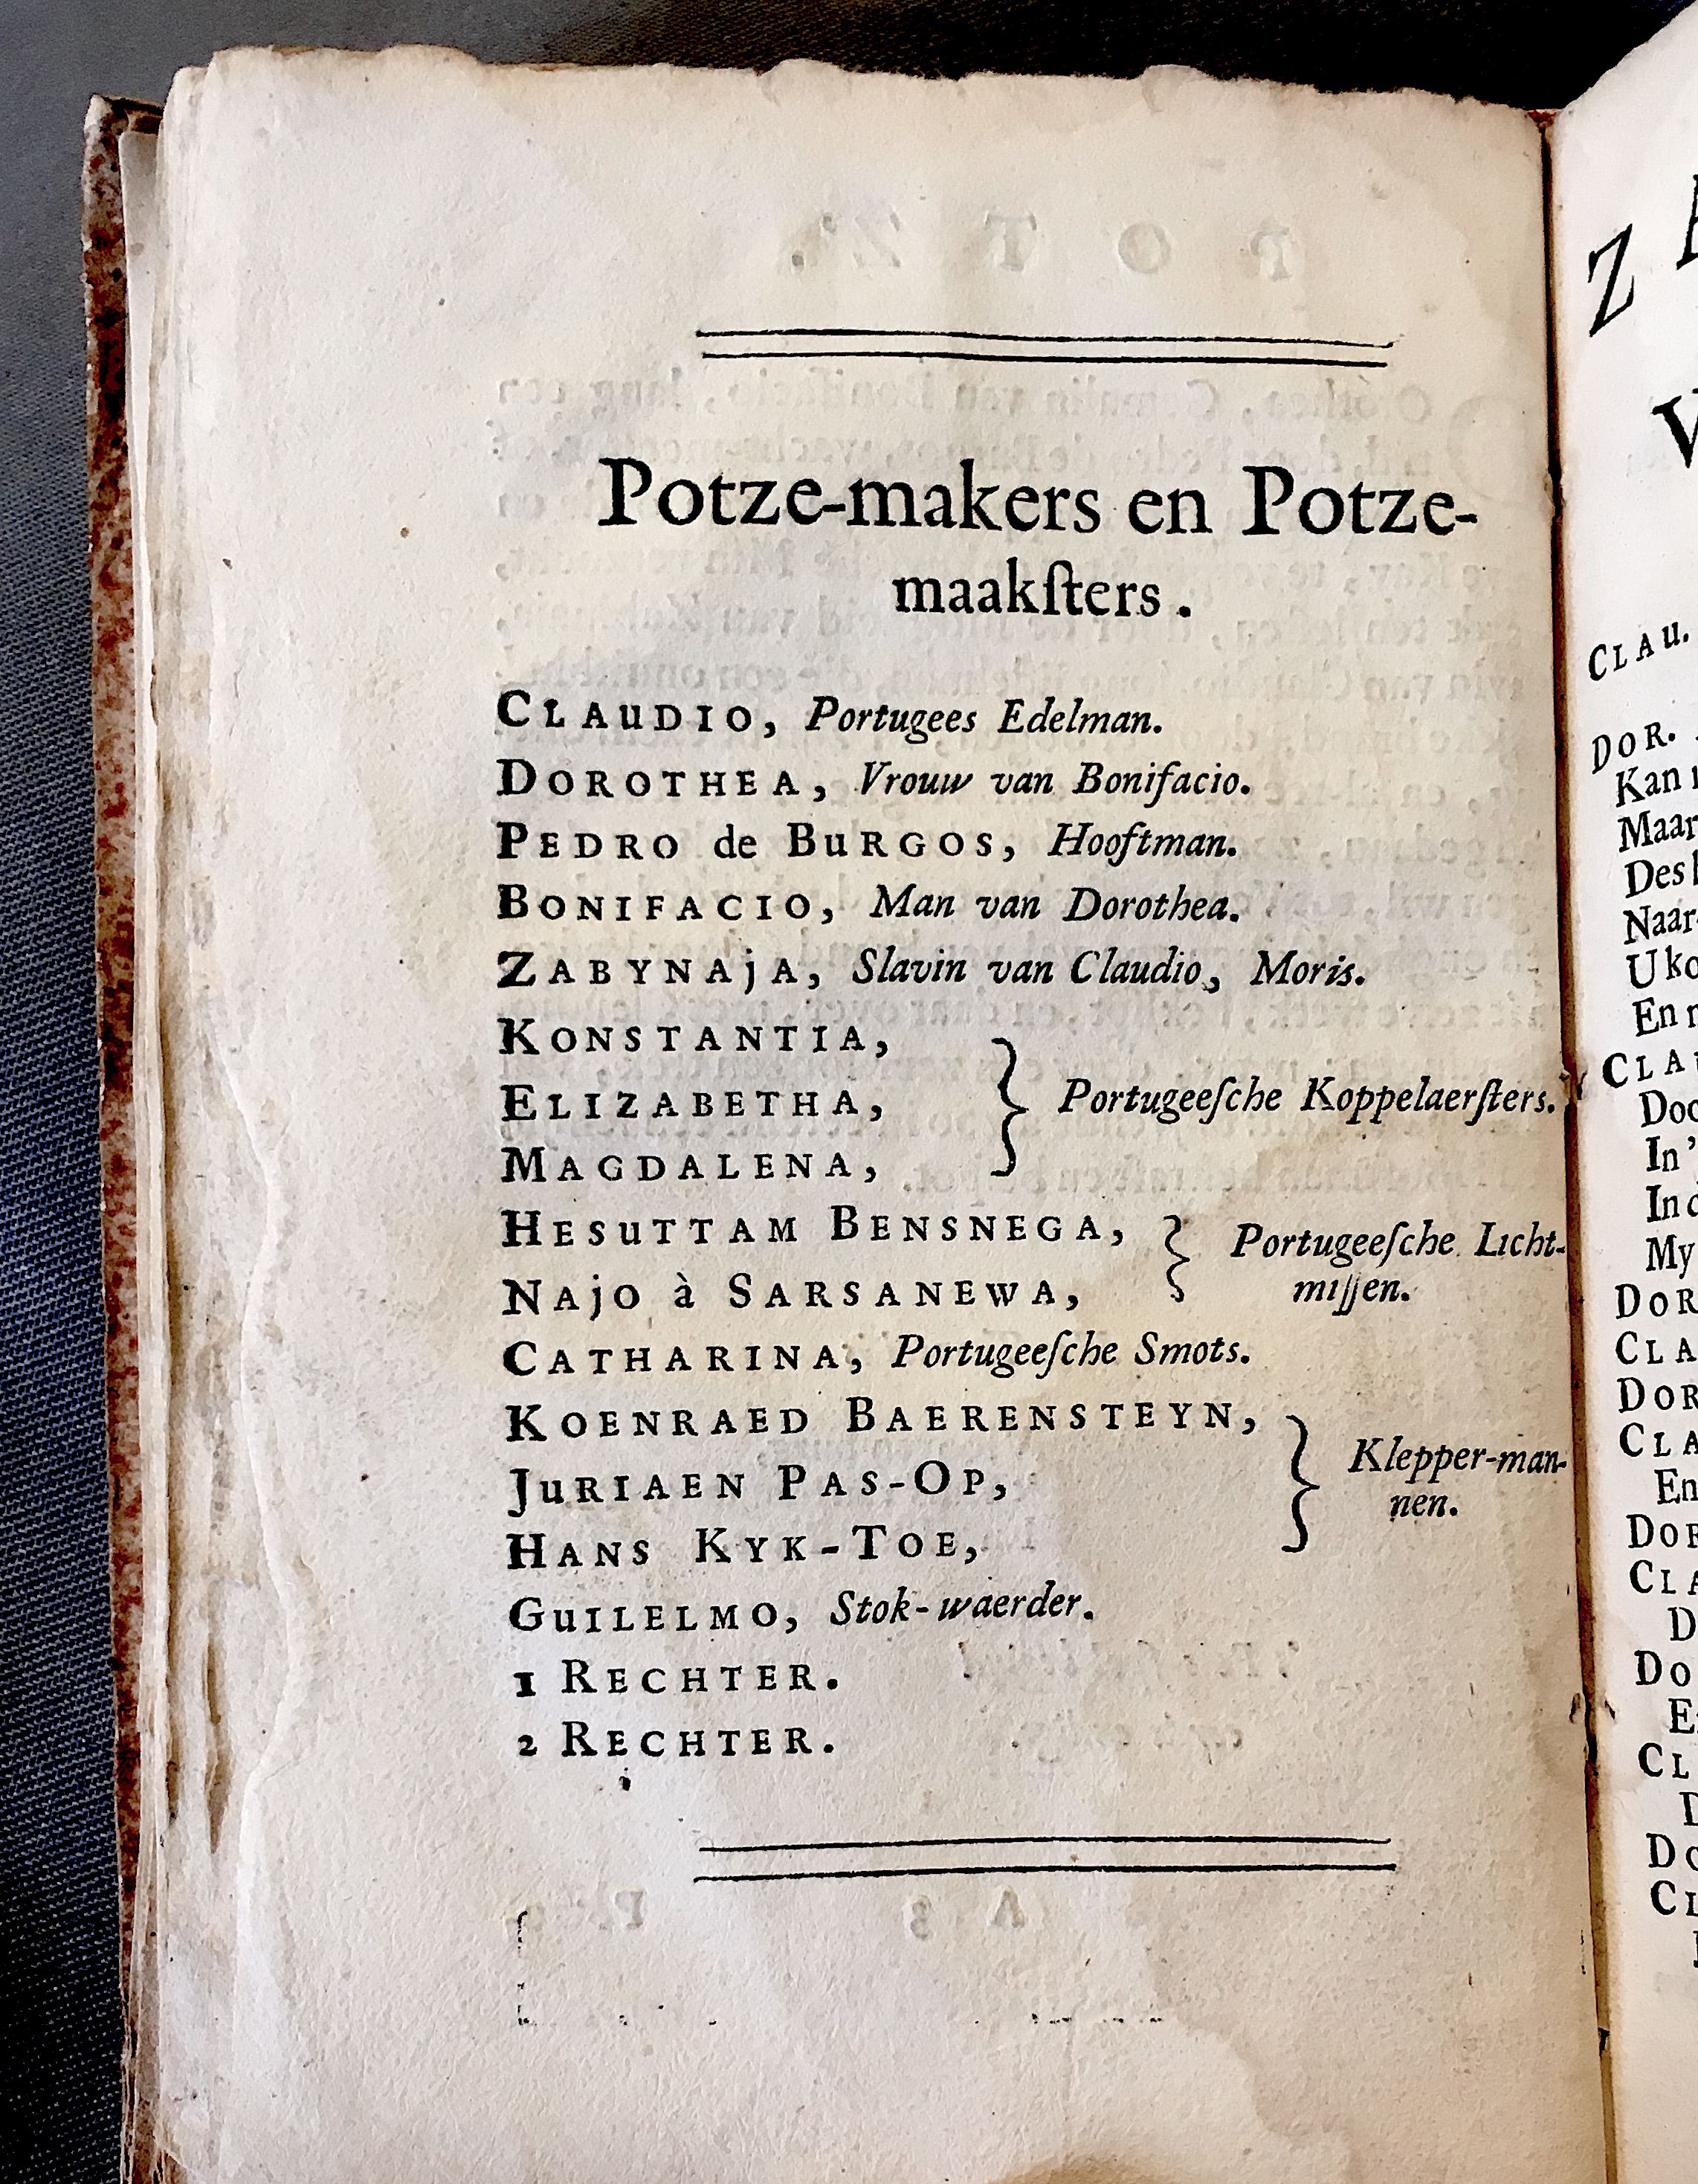 Potze-makers en Potze-
maakſters.
CLAuDIO, Portugees Edelman.
DOROTHEA, Vrouw van Bonifacio.
PEDRO de BuRGOS, Hooftman.
BONIFACIO, Man van Dorothea.
ZABYNAjA, Slavin van Claudio, Moris.
KONSTANTIA,
ELIZABETHA,
MAGDALENA,
Portugeeſche Koppelaerſters.
HESuTTAM BENSNEGA,
NAjO à SARSANEWA,
Portugeeſche Licht-
miſſen.
CATHARINA, Portugeeſche Smots.
KOENRAED BAERENSTEYN,
JuRIAEN PAS-OP,
HANS KYK-TOE,
Klepper-man-
nen.
GuILELMO, Stok-waerder.
1 RECHTER.
2 RECHTER.
Z
CLAu.
DOR.
Kan
Maar
Des
Naar
U
En
CLA
In
My
DOR
CLA
DOR
CLA
En
DOR
CLA
D
DO
CL
D
DO
CL